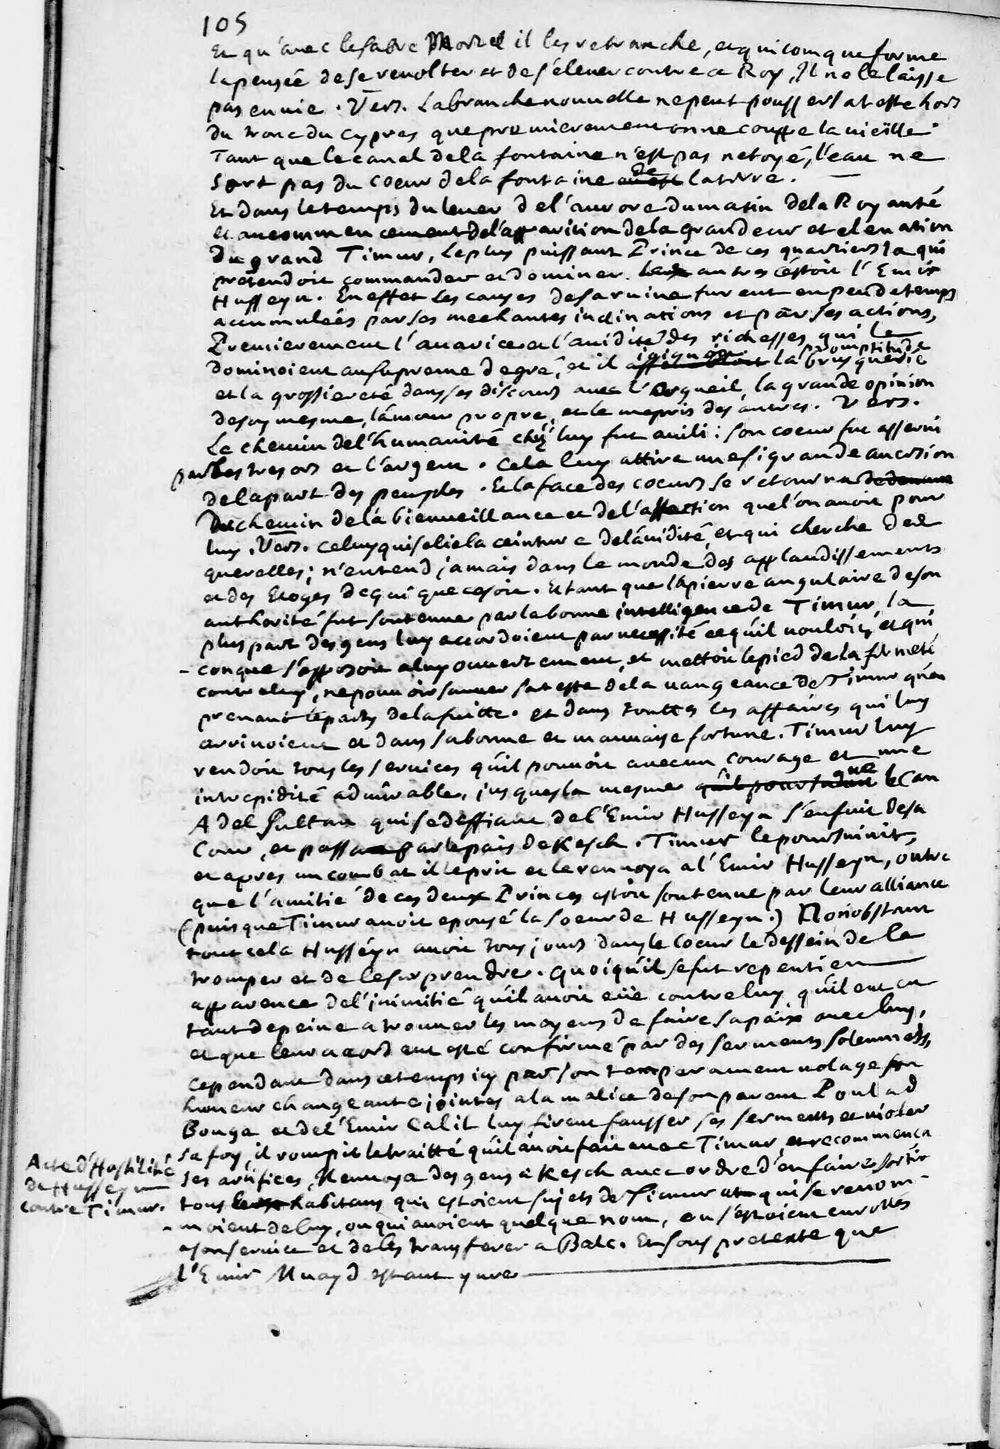 105
Et qu'avec le sabre Mortel il les retranche, et quiconque forme
la pensée de se revolter et de s'élever contre ce Roy, Il ne le laisse
pas en vie. Vers. La branche nouvelle ne peut pousser sa teste hors
du tronc du Cypres que premierement on ne couppe la vieille.
Tant que le canal de la fontaine n'est pas netoyé, l'eau ne
sort pas du coeur de la fontaine de la terre.
Et dans le temps du lever de l'aurore du matin de la Royauté
et au commencement de l'apparition de la grandeur et elevation
du grand Timur, le plus puissant Prince de ces quartiers la qui
pretendoit commander et dominer les autres c'estoit l'Emir
Husseyn. En effet les causes de sa ruine furent en peu de temps
accumulées par ses mechantes inclinations et par ses actions,
Premierement l'avarice et l'avidité des richesses qui le
dominoient au supreme degré, et il joignoit la promptitude brusquerie
et la grossiereté dans ses discours avec l'orgueil, la grande opinion
de soy mesme, l'amour propre, et le mepris des autres. Vers.
Le chemin de l'humanité chez luy fut avili: son coeur fut asservi
par les tresors et l'argent. Cela luy attire une si grande aversion
de la part des peuples. Et la face des coeurs se retourna
Du chemin de la bienveillance et de l'affection que l'on avoit pour
luy. Vers. Celuy qui se lie la ceinture de l'avidité, et qui cherche des
querelles; n'entend jamais dans le monde des applaudissements
et des Eloges de qui que ce soit. Et tant que la pierre angulaire de son
authorité fut soutenue par la bonne intelligence de Timur, la
plus part des gens luy accordoient par necessité ce qu'il vouloit, et qui
conque s'opposoit a luy ouvertement, et mettoit le pied de la fermeté
contre luy, ne pouvoit sauver sa teste de la vangeance de Timur qu'en
prenant le party de la fuitte. et dans touttes les affaires qui luy
arrivoient et dans sa bonne et mauvaise fortune. Timur luy
rendoit tous les services qu'il pouvoit avec un courage et une
intrepidité admirable, jusques la mesme que le Can
Adel Sultan qui se deffiant de l'Emir Husseyn s'enfuit de sa
Cour, et passa par le pais de Kesch. Timur le poursuivit,
et apres un combat il le prit et le renvoya a l'Emir Husseyn, outre
que l'amitié de ces deux Princes estoit soutenue par leur alliance
(puisque Timur avoit epousé la soeur de Husseyn.) Nonobstant
tout cela Husseyn avoit tousjours dans le coeur le dessein de le
tromper et de le surprendre. quoiqu'il se fut repenti en
apparence de l'inimitié qu'il avoit eüe contre luy, qu'il eut eu
tant de peine a trouver les moyens de faire sa paix avec luy,
et que leur accord eut esté confirmé par des serments solemnels,
Cependant dans ce temps icy par son temperament volage son
humeur changeante jointes a la malice de son parent Poulad
Bouga et de l'Emir Calil luy firent fausser ses serments et violer
sa foy, il rompit le traitté qu'il avoit fait avec Timur et recommença
ses artifices, Il envoya des gens a Kesch avec ordre d'en faire sortir
tous les habitans qui estoient sujets de Timur qui se renom-
moient de luy, ou qui avoient quelque nom, ou s'estoient enrollés
a son service et de les transferer a Balc. Et sous pretexte que
l'Emir Muayd estant yvre
Acte d'Hostilité
de Husseyn
contre Timur.